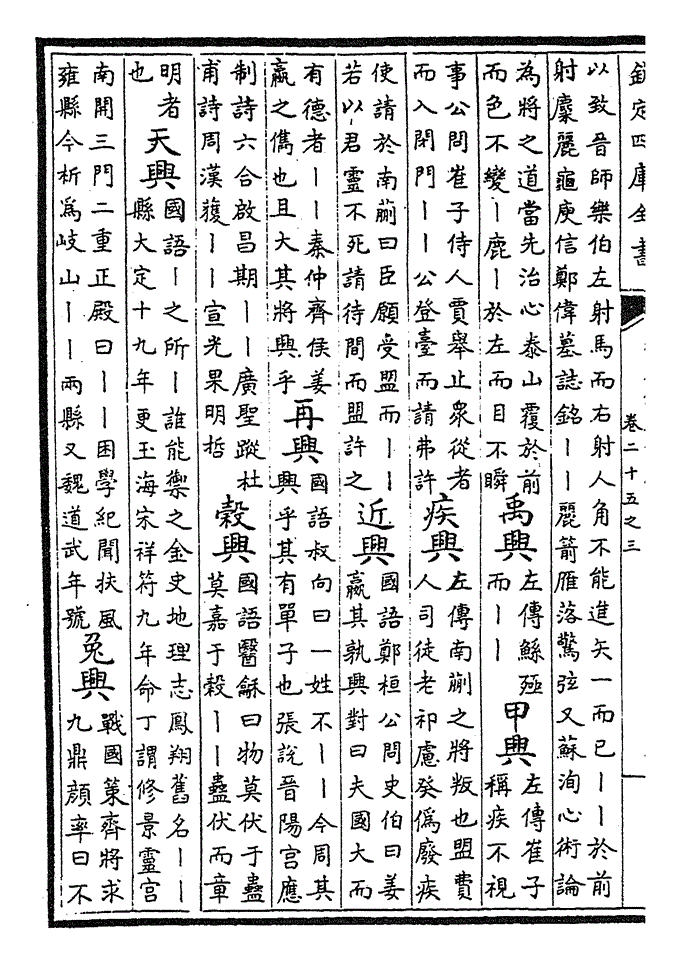 欽定四庫全書
卷二十五之三
以致晉師樂伯左射馬而右射人角不能進矢一而已丨丨於前
射麋麗龜庾信鄭偉墓誌銘丨丨麗箭雁落驚弦又蘇洵心術論
為將之道當先治心泰山覆於前
而色不變丨鹿丨於左而目不瞬
禹興
左傳鯀殛
而丨丨
甲興
左傳崔子
稱疾不視
事公問崔子侍人賈舉止衆從者
而入閉門丨丨公登臺而請弗許
疾興
左傳南蒯之將叛也盟費
人司徒老祁慮癸僞廢疾
使請於南蒯曰臣願受盟而丨丨
若以君靈不死請待間而盟許之
近興
國語鄭桓公問史伯曰姜
嬴其孰興對曰夫國大而
有德者丨丨秦仲齊侯姜
嬴之儁也且大其將興乎
再興
國語叔向曰一姓不丨丨今周其
興乎其有單子也張說晉陽宮應
制詩六合啟昌期丨丨廣聖蹤杜
甫詩周漢獲丨丨宣光果明哲
榖興
國語醫龢曰物莫伏于蠱
莫嘉于榖丨丨蠱伏而章
明者
也
天興
國語丨之所丨誰能禦之金史地理志鳳翔舊名丨丨
縣大定十九年更玉海宋祥符九年命丁謂修景靈宮
南開三門二重正殿曰丨丨困學紀聞扶風
雍縣今析爲岐山丨丨兩縣又魏道武年號
兔興
戰國策齊將求
九鼎顏率曰不